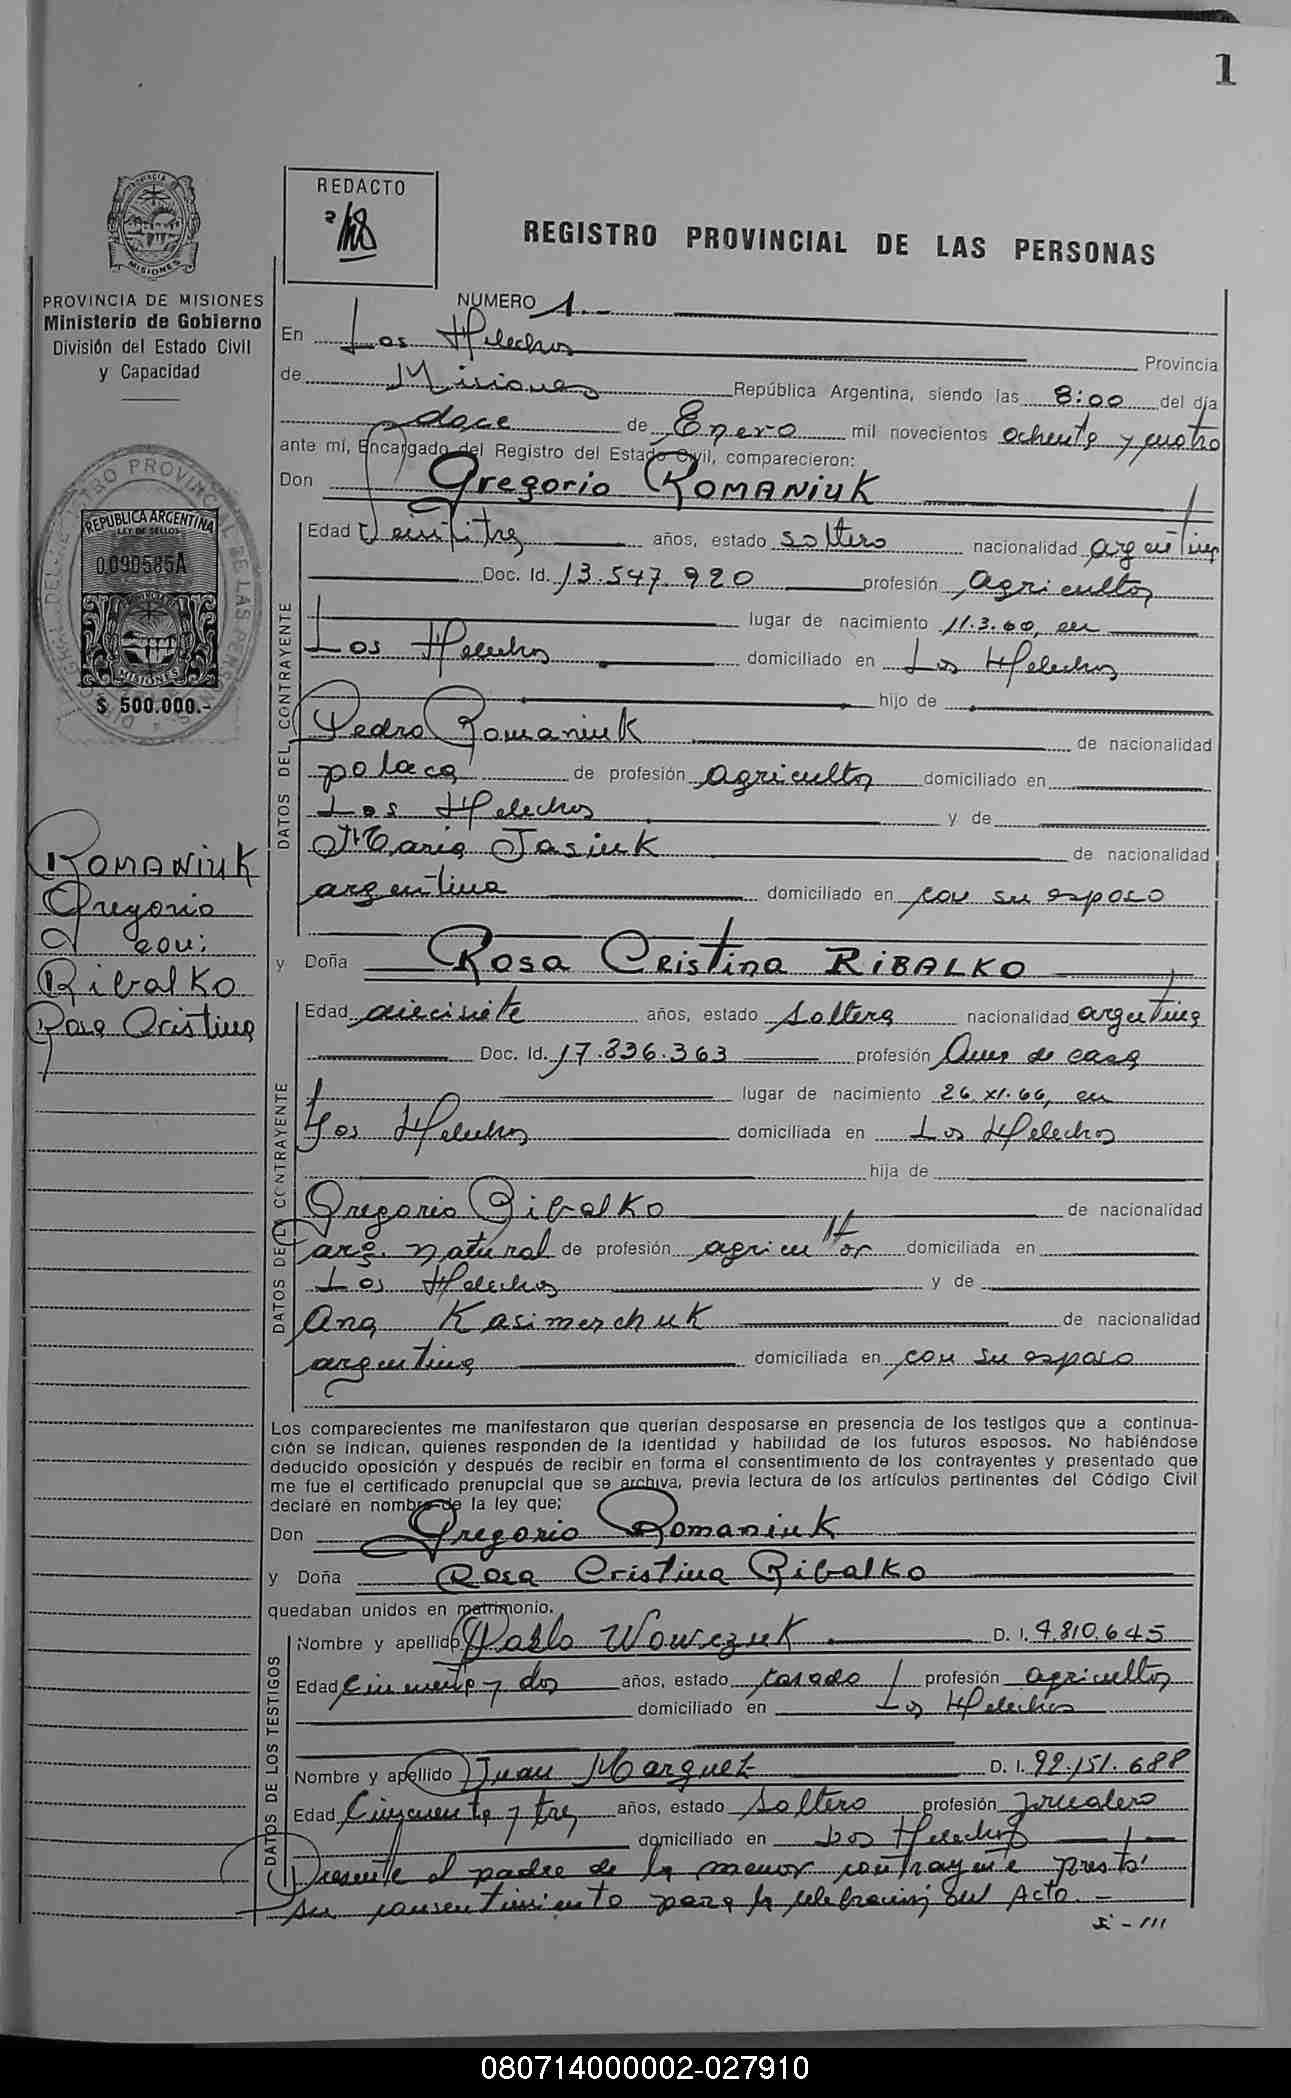 1
REDACTO
REGISTRO PROVINCIAL DE LAS PERSONAS
PROVINCIA DE MISIONES
Ministerio de Gobierno
División del Estado Civil
y Capacidad
REPUBLICA ARGENTINA
LEY DE SELLOS
0.090585A
MISIONES
$ 500.000.-
ROMANIUK
Gregorio
con:
Ribalko
Rosa Cristina
NUMERO 1.-
En Los Helechos Provincia
de Misiones República Argentina, siendo las 8:00 del día
doce de Enero mil novecientos ochenta y cuatro
ante mí, Encargado del Registro del Estado Civil, comparecieron:
Don Gregorio ROMANIUK
DATOS DEL CONTRAYENTE
Edad Veintitres años, estado soltero nacionalidad argentina
Doc. Id. 13.547.920 profesión agricultor
lugar de nacimiento 11.3.60, en
Los Helechos domiciliado en Los Helechos
hijo de
Pedro Romaniuk de nacionalidad
polaca de profesión agricultor domiciliado en
Los Helechos y de
Maria Jasiuk de nacionalidad
argentina domiciliado en con su esposo
y Doña ROSA CRISTINA RIBALKO
DATOS DE LA CONTRAYENTE
Edad diecisiete años, estado soltera nacionalidad argentina
Doc. Id. 17.836.363 profesión Ama de casa
lugar de nacimiento 26.XI.66, en
Los Helechos domiciliada en Los Helechos
hija de
Gregorio Ribalko de nacionalidad
arg. natural de profesión agricultor domiciliada en
Los Helechos y de
Ana Kasimerchuk de nacionalidad
argentina domiciliada en con su esposo
Los comparecientes me manifestaron que querían desposarse en presencia de los testigos que a continua-
ción se indican, quienes responden de la identidad y habilidad de los futuros esposos. No habiéndose
deducido oposición y después de recibir en forma el consentimiento de los contrayentes y presentado que
me fue el certificado prenupcial que se archiva, previa lectura de los artículos pertinentes del Código Civil
declaré en nombre de la ley que:
Don Gregorio Romaniuk
y Doña Rosa Cristina Ribalko
quedaban unidos en matrimonio.
DATOS DE LOS TESTIGOS
Nombre y apellido Pablo Wowczuk D. I. 9.810.645
Edad Cincuenta y dos años, estado casado profesión agricultor
domiciliado en Los Helechos
Nombre y apellido Juan Marquez D. I. 92.151.688
Edad Cincuenta y tres años, estado Soltero profesión jornalero
domiciliado en Los Helechos
Presente el padre de la menor contrayente prestó
su consentimiento para la celebración del Acto.-
080714000002-027910